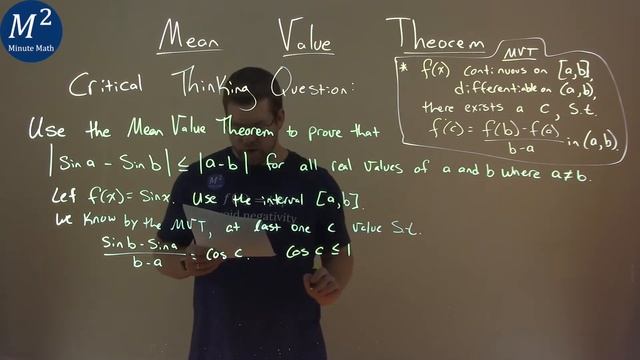 M²
Minute Math
Mean Value Theorem
MVT
* f(x) continuous on [a,b],
differentiable on (a,b),
there exists a c, s.t.
f'(c) = f(b) - f(a) / b-a in (a,b).
Critical Thinking Question:
Use the Mean Value Theorem to prove that
|Sin a - Sin b| ≤ |a-b| for all real values of a and b where a≠b.
Let f(x) = Sin x. Use the interval [a,b].
We know by the MVT, at last one c value s.t.
Sin b - Sin a / b-a = Cos c. Cos c ≤ 1
M²
negativity